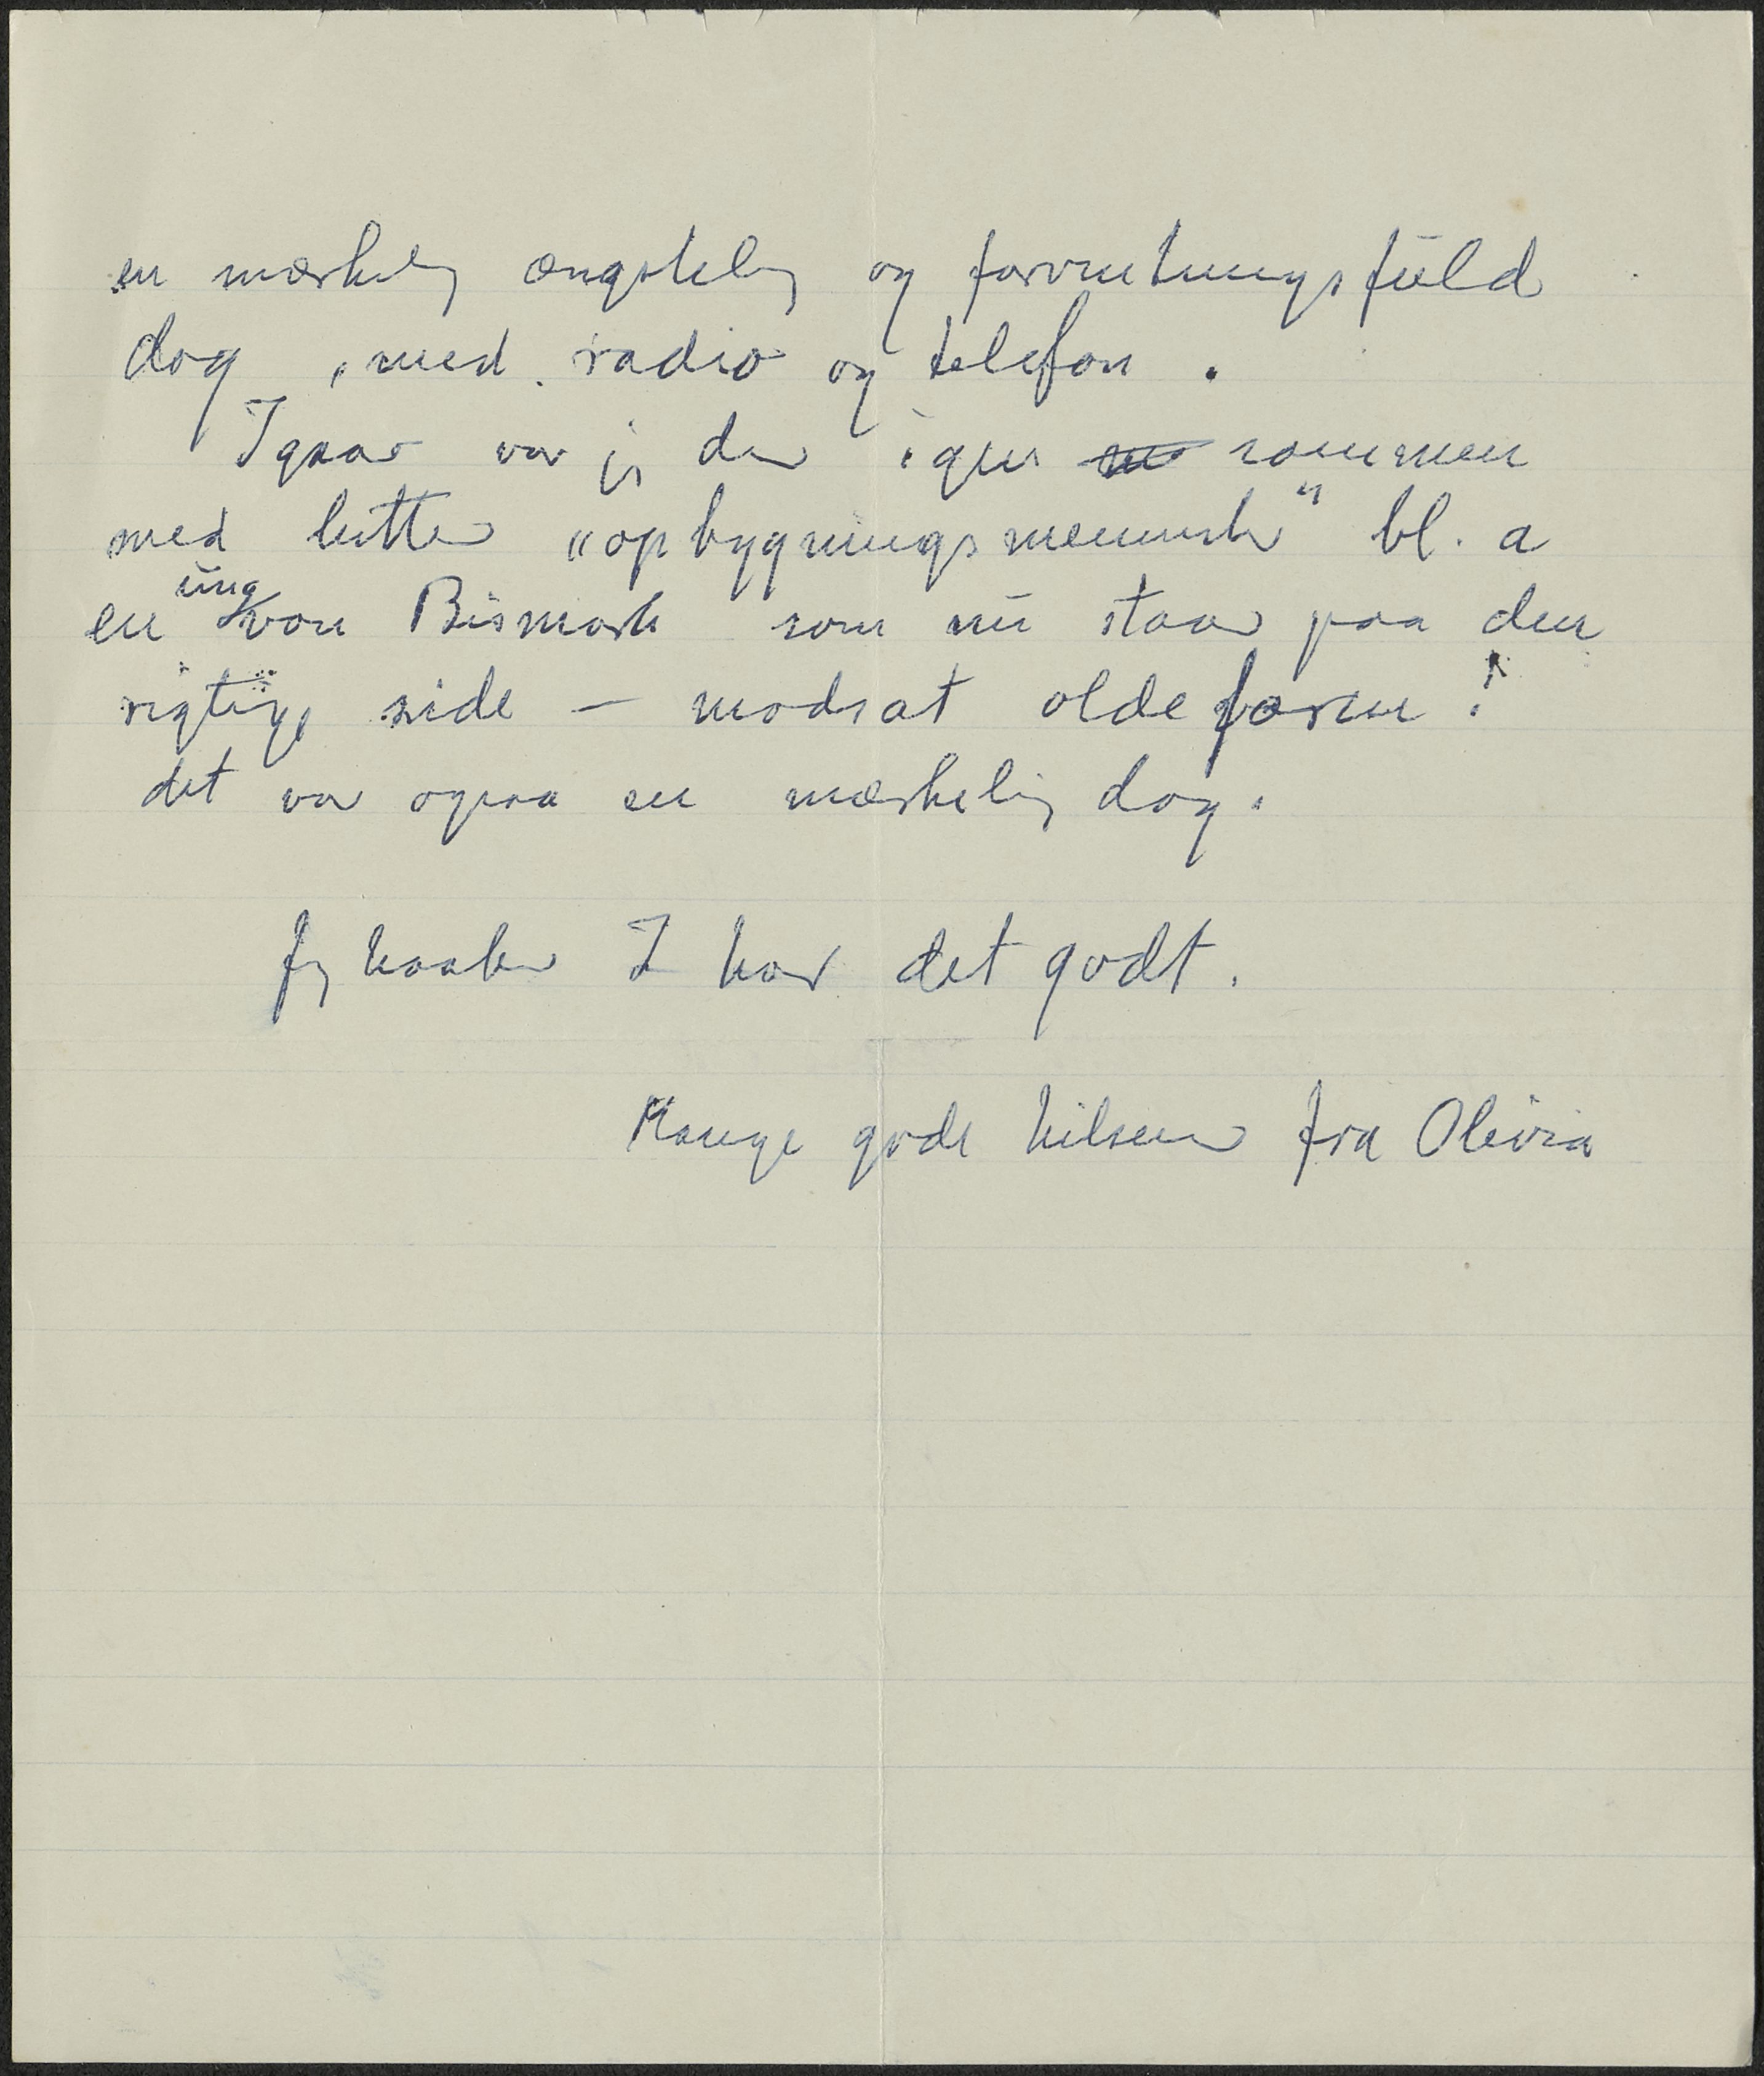 en mærkelig ængstelig og forventningsfuld
dag, med radio og telefon.
Igaar var jeg der igen sammen
med lutter "opbygningsmennesker" bl. a
en ung von Bismark som nu staar paa den
rigtige side - modsat oldefaren!
det var ogsaa en mærkelig dag.
Jeg haaber I har det godt.
Mange gode hilsener fra Olivia